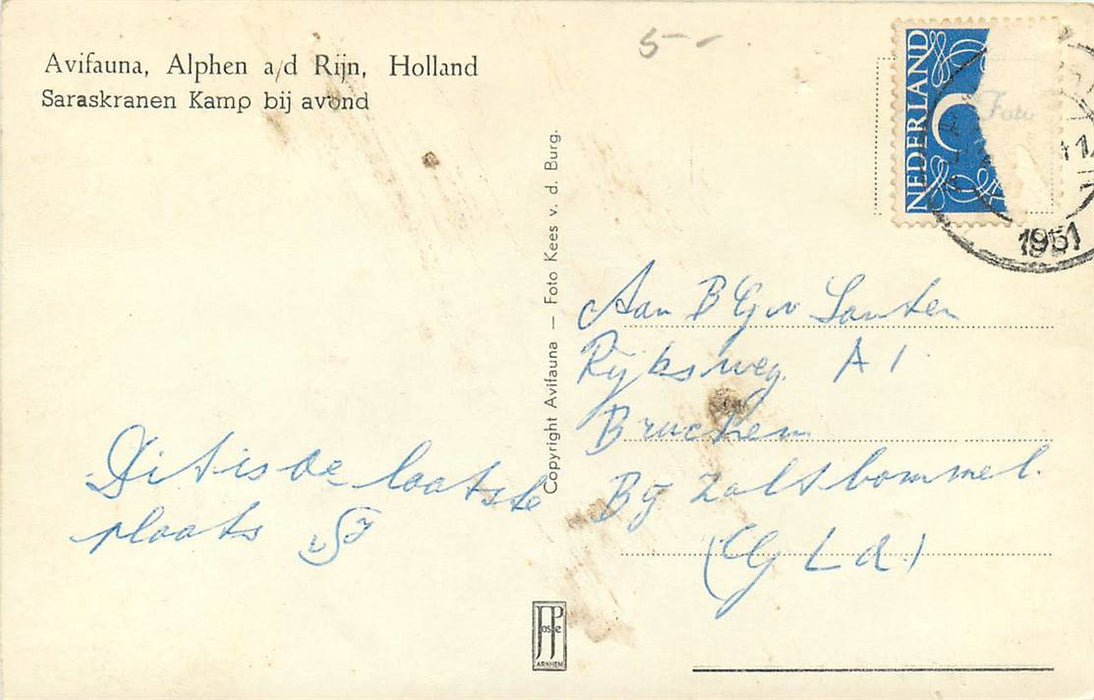 Avifauna, Alphen a/d Rijn, Holland
Saraskranen Kamp bij avond
5-
NEDERLAND
Foto
1951
Copyright Avifauna — Foto Kees v. d. Burg.
Aan B G v Santen
Rijksweg. A 1
Bruchem
Bij Zaltbommel.
(Gld)
Dit is de laatste
plaats
JosPe
ARNHEM